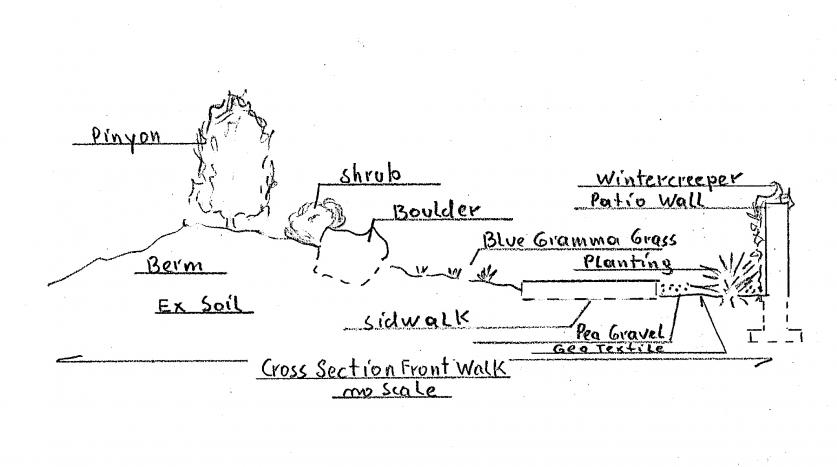 Pinyon
Shrub
Boulder
Wintercreeper
Patio Wall
Blue Gramma Grass
Planting
Berm
Ex Soil
Sidwalk
Pea Gravel
Geo Textile
Cross Section Front Walk
no Scale